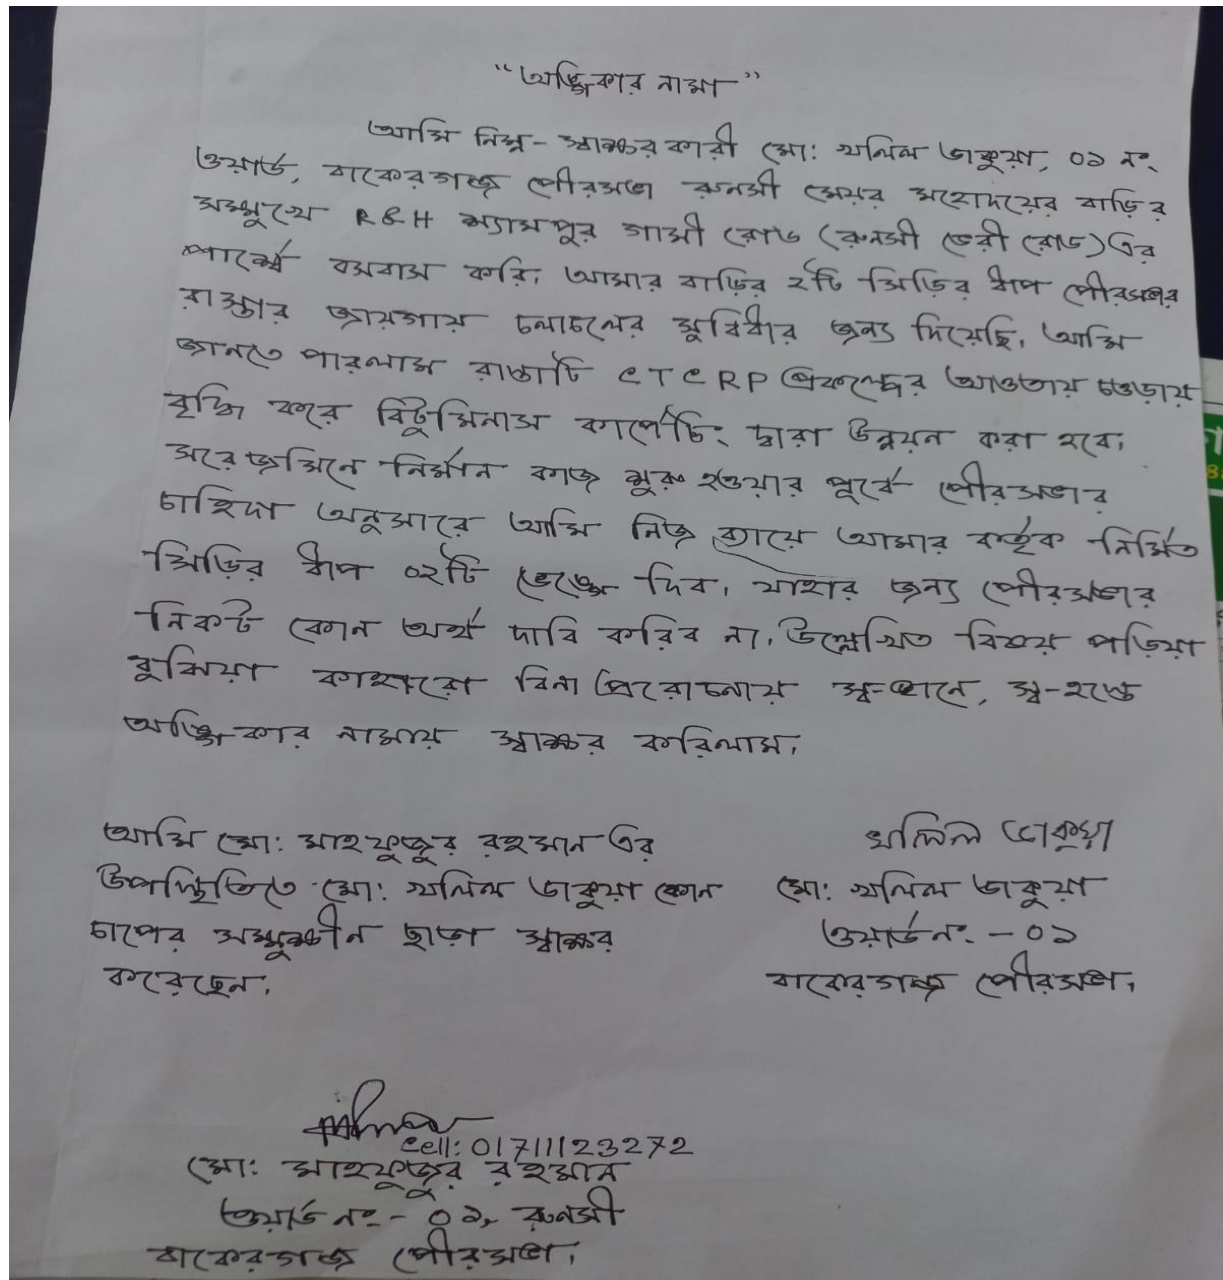 “অঙ্গিকার নামা”
আমি নিম্ন - স্বাক্ষর কারী মো: খলিল ডাকুয়া, ০১ নং
ওয়ার্ড, বাকেরগঞ্জ পৌরসভা রুনসী মেয়র মহোদয়ের বাড়ির
সম্মুখে R&H শ্যামপুর গামী রোড (রুনসী ভেরী রোড) এর
পার্শ্বে বসবাস করি। আমার বাড়ির ২টি সিঁড়ির ধাপ পৌরসভার
রাস্তার জায়গায় চলাচলের সুবিধার জন্য দিয়েছি। আমি
জানতে পারলাম রাস্তাটি CTCRP প্রকল্পের আওতায় চওড়ায়
বৃদ্ধি করে বিটুমিনাস কার্পেটিং দ্বারা উন্নয়ন করা হবে।
সরেজমিনে নির্মান কাজ শুরু হওয়ার পূর্বে পৌরসভার
চাহিদা অনুসারে আমি নিজ আমার কর্তৃক নির্মিত
সিঁড়ির ধাপ ০২টি ভেঙ্গে দিব। যাহার জন্য পৌরসভার
নিকট কোন অর্থ দাবি করিব না। উল্লেখিত বিষয় পড়িয়া
বুঝিয়া কাহারো বিনা প্ররোচনায় স্ব-জ্ঞানে, স্ব-হস্তে
অঙ্গিকার নামায় স্বাক্ষর করিলাম।
আমি মো: মাহফুজুর রহমান এর
উপস্থিতিতে মো: খলিল ডাকুয়া কোন
চাপের সম্মুক্ষীন ছাড়া স্বাক্ষর
করেছেন।
খলিল ডাকুয়া
মো: খলিল ডাকুয়া
ওয়ার্ড নং - ০১
বাকেরগঞ্জ পৌরসভা।
Cell: 01711123272
মো: মাহফুজুর রহমান
ওয়ার্ড নং - ০১, রুনসী
বাকেরগঞ্জ পৌরসভা।